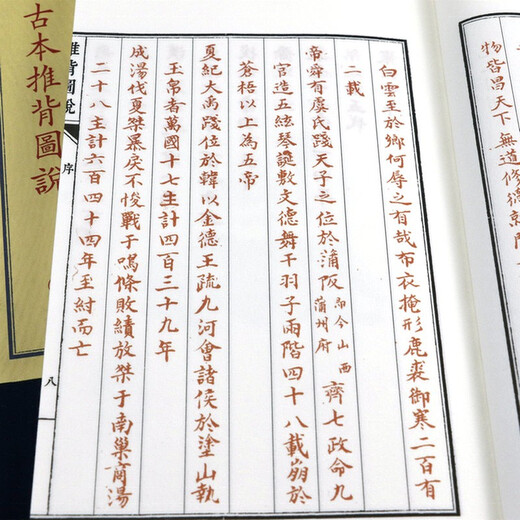 物皆昌天下無道修德
白雲至於鄉何辱之有哉布衣掩形鹿裘御寒二百有
二載
帝舜有虞氏踐天子之位於蒲阪即今山西蒲州府齊七政命九
官造五絃琴誕敷文德舞干羽子兩階四十八載崩於
蒼梧以上為五帝
夏紀大禹踐位於韓以金德王疏九河會諸侯於塗山執
玉帛者萬國十七主計四百三十九年
成湯伐夏桀暴戾不悛戰于鳴條敗績放桀于南巢商湯
二十八主計六百四十四年至紂而亡
推背圖說
序
八
古本推背圖說